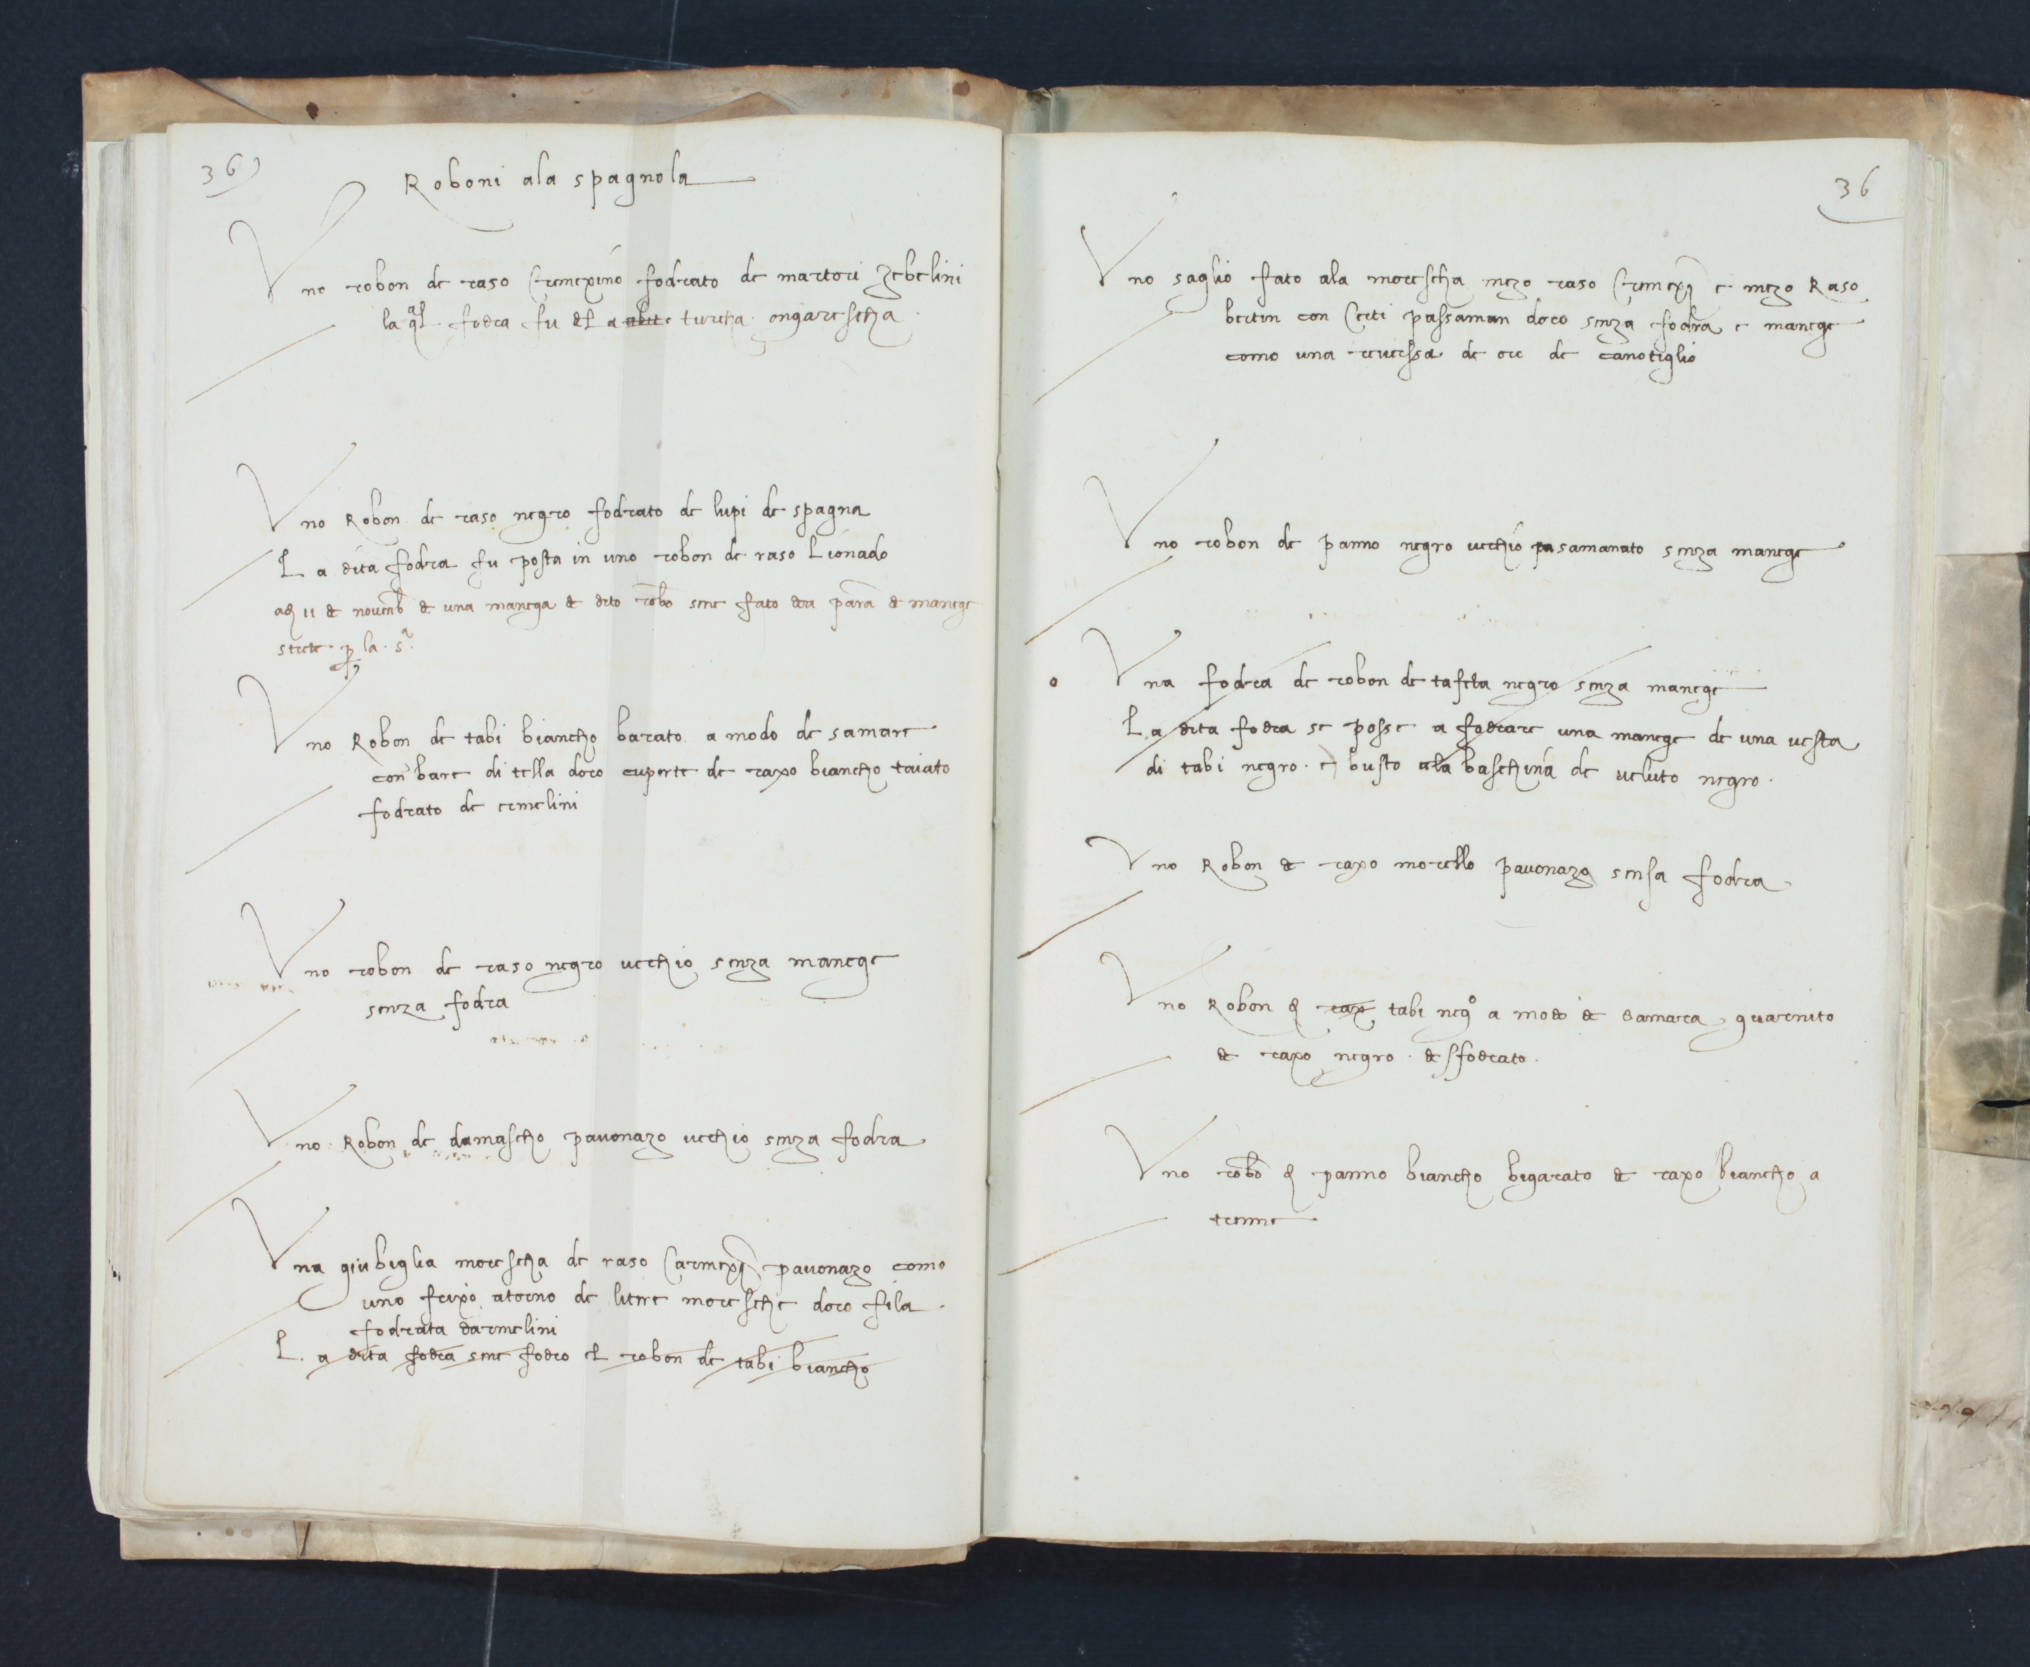 36
Roboni ala spagnola
Uno robon de raso Cremexino fodrato de martori zebelini
la qal fodra fu del a turcha ongarescha
Uno Robon de raso negro fodrato de lupi de spagna
La dita fodra fu posta in uno robon de raso Lionado
adj 11 de novenb de una manega de dito robo sene fato para de manege
strete p la sa
Uno Robon de tabi biancho barato a modo de samare
con bare di tella doro cuperte de raxo biancho taiato
fodrato de ermelini
Uno robon de raso negro vechio senza manege
senza fodra
Uno Robon de damascho pavonazo vechio senza fodra
Una giubiglia morescha de raso Carmexi pavonazo como
uno frixo atorno de litere moresche doro fila
fodrata darmelini
La dita fodra sene fodro el robon de tabi biancho
36
Uno saglio fato ala morescha mezo raso Cremexi e mezo Raso
bertin con Certi passaman doro senza fodra e manege
como una reversa de ore de canotiglio
Uno robon de panno negro vechio pasamanato senza manege
Una fodra de robon de tafeta negro senza manege
La dita fodra se posse a fodrare una manege de una vesta
di tabi negro e busto ala baschina de veluto negro
Uno Robon de raxo morello pavonazo sensa fodra
Uno Robon de rax tabi nego a modo de samara guarnito
de raxo negro desfodrato
Uno robo de panno biancho bigarato de raxo biancho a
treme